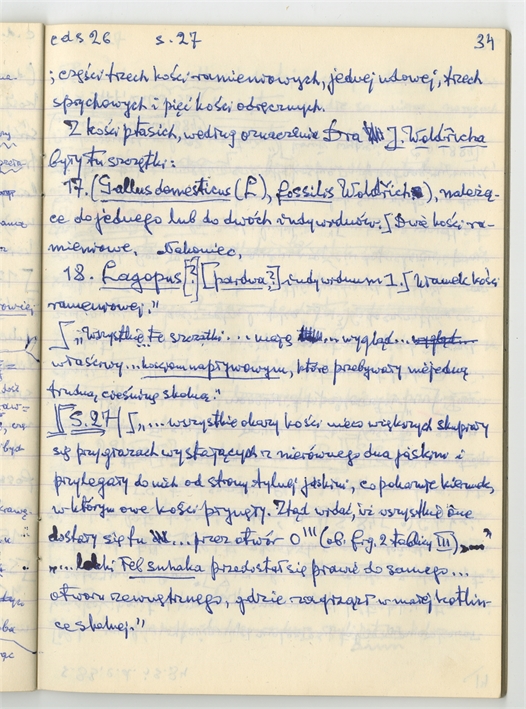 cds 26 s. 27 34
; części trzech kości ramieniowych, jednej udowej, trzech
sprychowych i pięć kości odręcznych.
Z kości ptasich, według oznaczenia Dra J. Woldřicha
były tu szczątki:
17. (Gallus domesticus (L), fossilis Woldřich), należą-
ce do jednego lub do dwóch indywiduów. [Dwie kości ra-
mieniowe. Nakoniec,
18. Lagopus [?] [pardwa?] indywiduum 1.] Ułamek kości
ramieniowej."
["Wszystkie te szczątki... mają ... wygląd... wygląd...
właściwy... kościom napływowym, które przebywały niejedną
trudną cieśninę skalną."
[[S. 27] [„... wszystkie okazy kości nieco większych skupiały
się przy głazach wystających z nierównego dna jaskini i
przylegały do nich od strony tylnej jaskini, co pokazuje kierunek,
w którym owe kości przyszły. Ztąd widać, iż wszystkie one
dostały się tu ... przez otwór O''' (ob. fig. 2 tablicy III)..."
„... łebki Tel suhaka przedostał się prawie do samego...
otworu zewnętrznego, gdzie zagrzązł w małej kotlin-
ce skalnej."